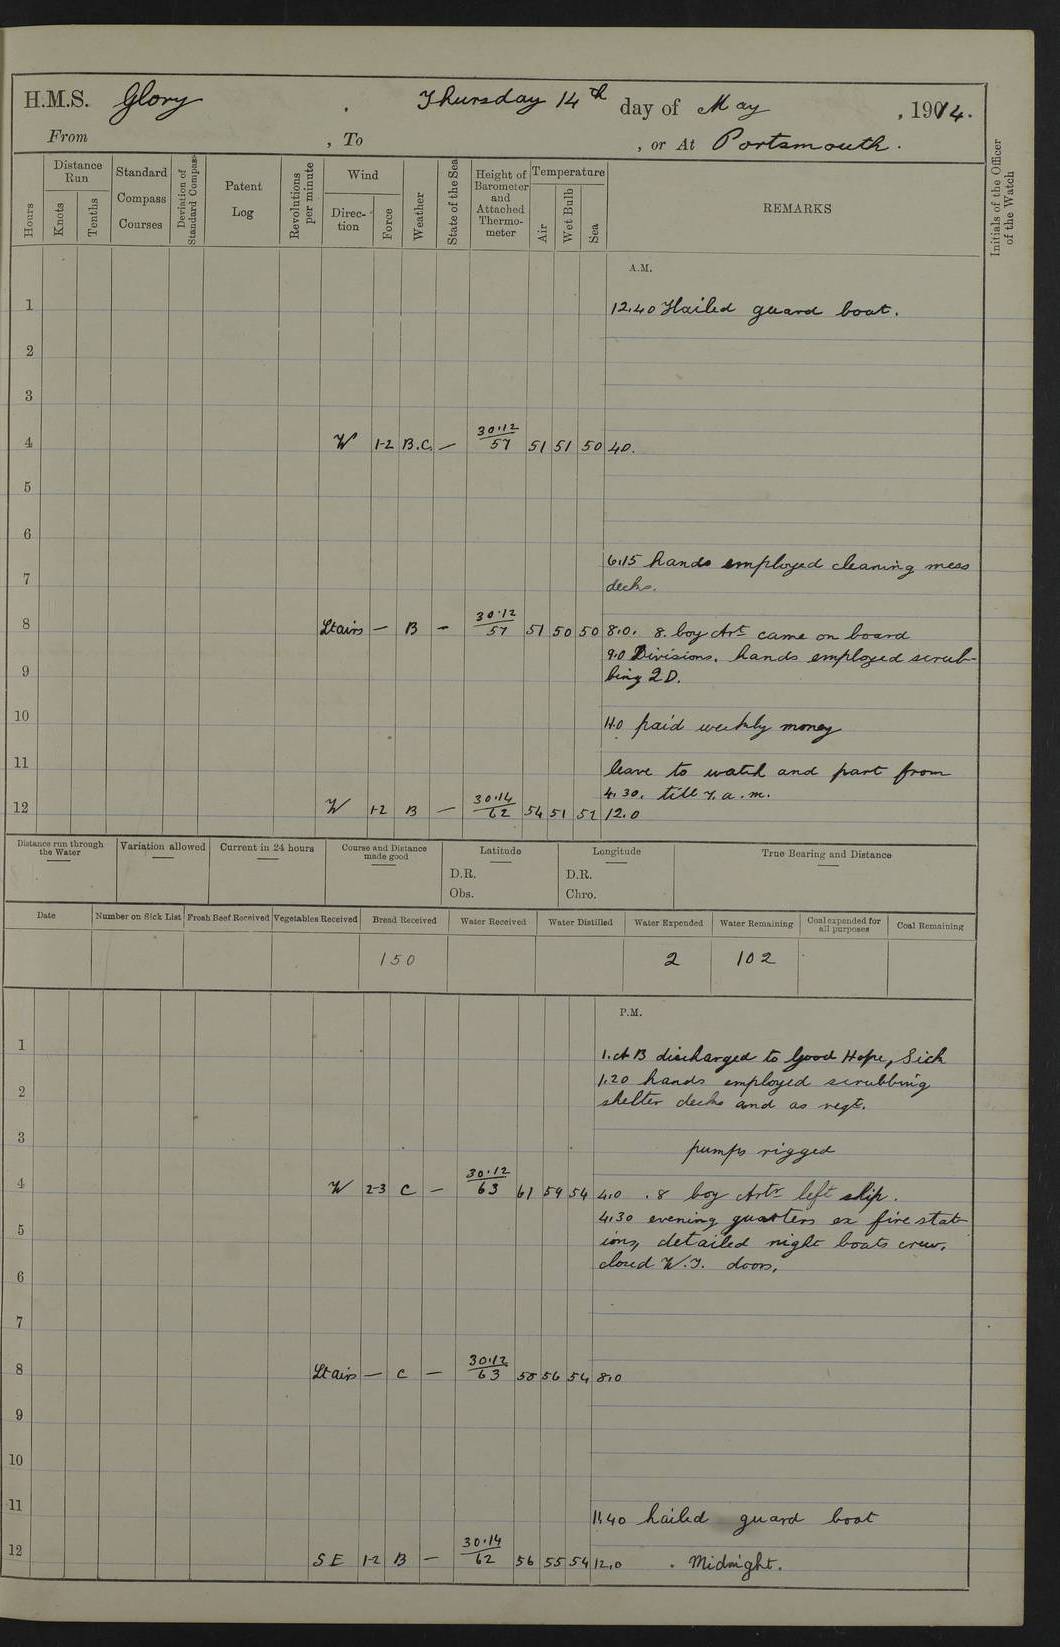 H.M.S. Glory Thursday 14th day of May, 1914.
From , To , or At Portsmouth.
Hours
Distance Run
Knots
Tenths
Standard Compass Courses
Deviation of Standard Compass
Patent Log
Revolutions per minute
Wind
Direction
Force
Weather
State of the Sea
Height of Barometer and Attached Thermometer
Temperature
Air
Wet Bulb
Sea
REMARKS
Initials of the Officer of the Watch
A.M.
1 12.40 Hailed guard boat.
2
3
4 W 1-2 B.C. — 30.12/57 51 51 50 4.0.
5
6
6.15 hands employed cleaning mess
7 decks.
8 Lt airs — B — 30.12/57 51 50 50 8.0. 8. boy Arts came on board
9.0 Divisions. hands employed scrub-
9 bing 2 D.
10 11.0 paid weekly money
11 leave to watch and part from
4.30. till 7. a.m.
12 W 1-2 B — 30.14/62 54 51 51 12.0
Distance run through the Water
Variation allowed
Current in 24 hours
Course and Distance made good
Latitude
D.R.
Obs.
Longitude
D.R.
Chro.
True Bearing and Distance
Date Number on Sick List Fresh Beef Received Vegetables Received Bread Received Water Received Water Distilled Water Expended Water Remaining Coal expended for all purposes Coal Remaining
150 2 102
P.M.
1 1. A B discharged to Good Hope, Sick
1.20 hands employed scrubbing
2 shelter decks and as reqt.
3 pumps rigged
4 W 2-3 C — 30.12/63 61 59 54 4.0 . 8 boy Arts left ship.
4.30 evening quarters ex fire stat-
5 ions, detailed night boats crew.
closed W.T. doors.
6
7
8 Lt airs — C — 30.12/63 58 56 54 8.0
9
10
11 11.40 hailed guard boat
12 SE 1-2 B — 30.14/62 56 55 54 12.0 . Midnight.